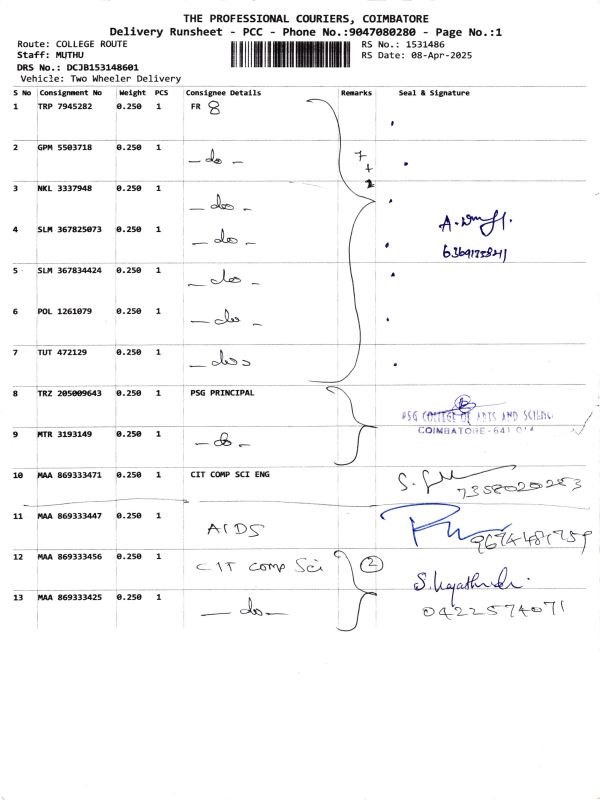 THE PROFESSIONAL COURIERS, COIMBATORE
Delivery Runsheet - PCC - Phone No.:9047080280 - Page No.:1
Route: COLLEGE ROUTE
RS No.: 1531486
Staff: MUTHU
RS Date: 08-Apr-2025
DRS No.: DCJB153148601
Vehicle: Two Wheeler Delivery
S No Consignment No Weight PCS Consignee Details Remarks Seal & Signature
1 TRP 7945282 0.250 1 FR 8
2 GPM 5503718 0.250 1 - do -
7
+
3 NKL 3337948 0.250 1 - do -
4 SLM 367825073 0.250 1 - do -
5 SLM 367834424 0.250 1 - do -
6 POL 1261079 0.250 1 - do -
7 TUT 472129 0.250 1 - do -
8 TRZ 205009643 0.250 1 PSG PRINCIPAL
PSG COLLEGE OF ARTS AND SCIENCE
COIMBATORE-641 014
9 MTR 3193149 0.250 1 - do -
10 MAA 869333471 0.250 1 CIT COMP SCI ENG
7358020253
11 MAA 869333447 0.250 1 AIDS
12 MAA 869333456 0.250 1 CIT comp Sci 2
13 MAA 869333425 0.250 1 - do -
0422574071